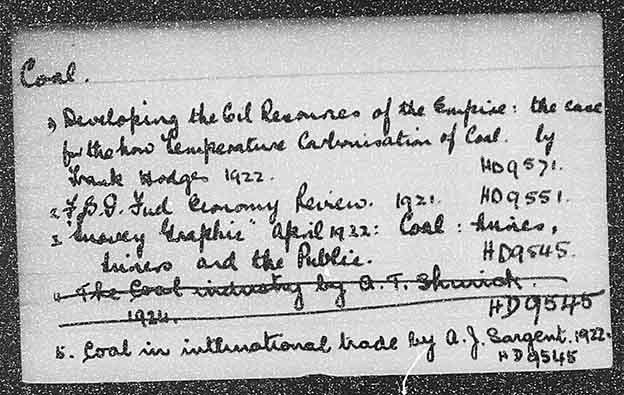 Coal.
1) Developing the Oil Resources of the Empire: the case
for the Low Temperature Carbonisation of Coal. by
Frank Hodges 1922. HD9571.
2. F.B.I. Ind Economy Review. 1921. HD9551.
3. "Survey Graphic" April 1922: Coal: Mines,
Miners and the Public. HD9545.
4. The Coal industry by A.T. Shurick.
1924. HD9545
5. Coal in international trade by A.J. Sargent. 1922.
HD9545